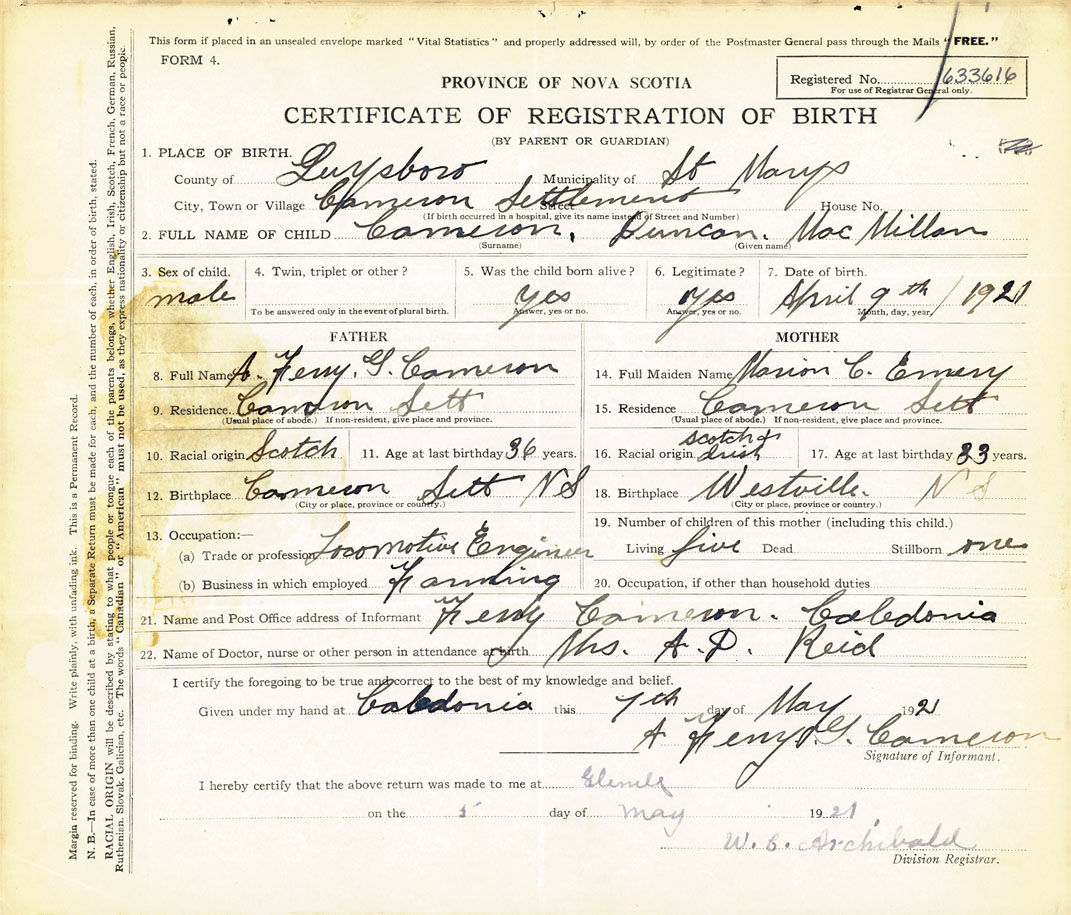 This form if placed in an unsealed envelope marked "Vital Statistics" and properly addressed will, by order of the Postmaster General pass through the Mails "FREE."
FORM 4.
Registered No. 633616
For use of Registrar General only.
PROVINCE OF NOVA SCOTIA
CERTIFICATE OF REGISTRATION OF BIRTH
(BY PARENT OR GUARDIAN)
1. PLACE OF BIRTH.
County of Guysboro Municipality of St Marys
City, Town or Village Cameron Settlement Street House No.
(If birth occurred in a hospital, give its name instead of Street and Number)
2. FULL NAME OF CHILD Cameron, Duncan. Mac Millan
(Surname) (Given name)
3. Sex of child. 4. Twin, triplet or other? 5. Was the child born alive? 6. Legitimate? 7. Date of birth.
male yes yes April 9th / 1921
To be answered only in the event of plural birth. Answer, yes or no. Answer, yes or no. Month, day, year
FATHER MOTHER
8. Full Name A. Ferry. G. Cameron 14. Full Maiden Name Marion C. Emery
9. Residence Cameron Sett 15. Residence Cameron Sett
(Usual place of abode.) If non-resident, give place and province. (Usual place of abode.) If non-resident, give place and province.
10. Racial origin Scotch 11. Age at last birthday 36 years. 16. Racial origin scotch & Irish 17. Age at last birthday 33 years.
12. Birthplace Cameron Sett N S 18. Birthplace Westville. N S
(City or place, province or country.) (City or place, province or country.)
13. Occupation:— 19. Number of children of this mother (including this child.)
(a) Trade or profession Locomotive Engineer Living five Dead Stillborn one
(b) Business in which employed Farming 20. Occupation, if other than household duties
21. Name and Post Office address of Informant Ferry Cameron. Caledonia
22. Name of Doctor, nurse or other person in attendance at birth Mrs. A. D. Reid
I certify the foregoing to be true and correct to the best of my knowledge and belief.
Given under my hand at Caledonia this 7th day of May 1921
A Ferry G. Cameron
Signature of Informant.
I hereby certify that the above return was made to me at
on the 5 day of May 1921.
W. C. Archibald
Division Registrar.
Margin reserved for binding. Write plainly, with unfading ink. This is a Permanent Record.
N. B.—In case of more than one child at a birth, a Separate Return must be made for each, and the number of each, in order of birth, stated.
RACIAL ORIGIN will be described by stating to what people or tongue each of the parents belongs, whether English, Irish, Scotch, French, German, Russian,
Ruthenian, Slovak, Galician, etc. The words "Canadian" or "American" must not be used, as they express nationality or citizenship but not a race or people.